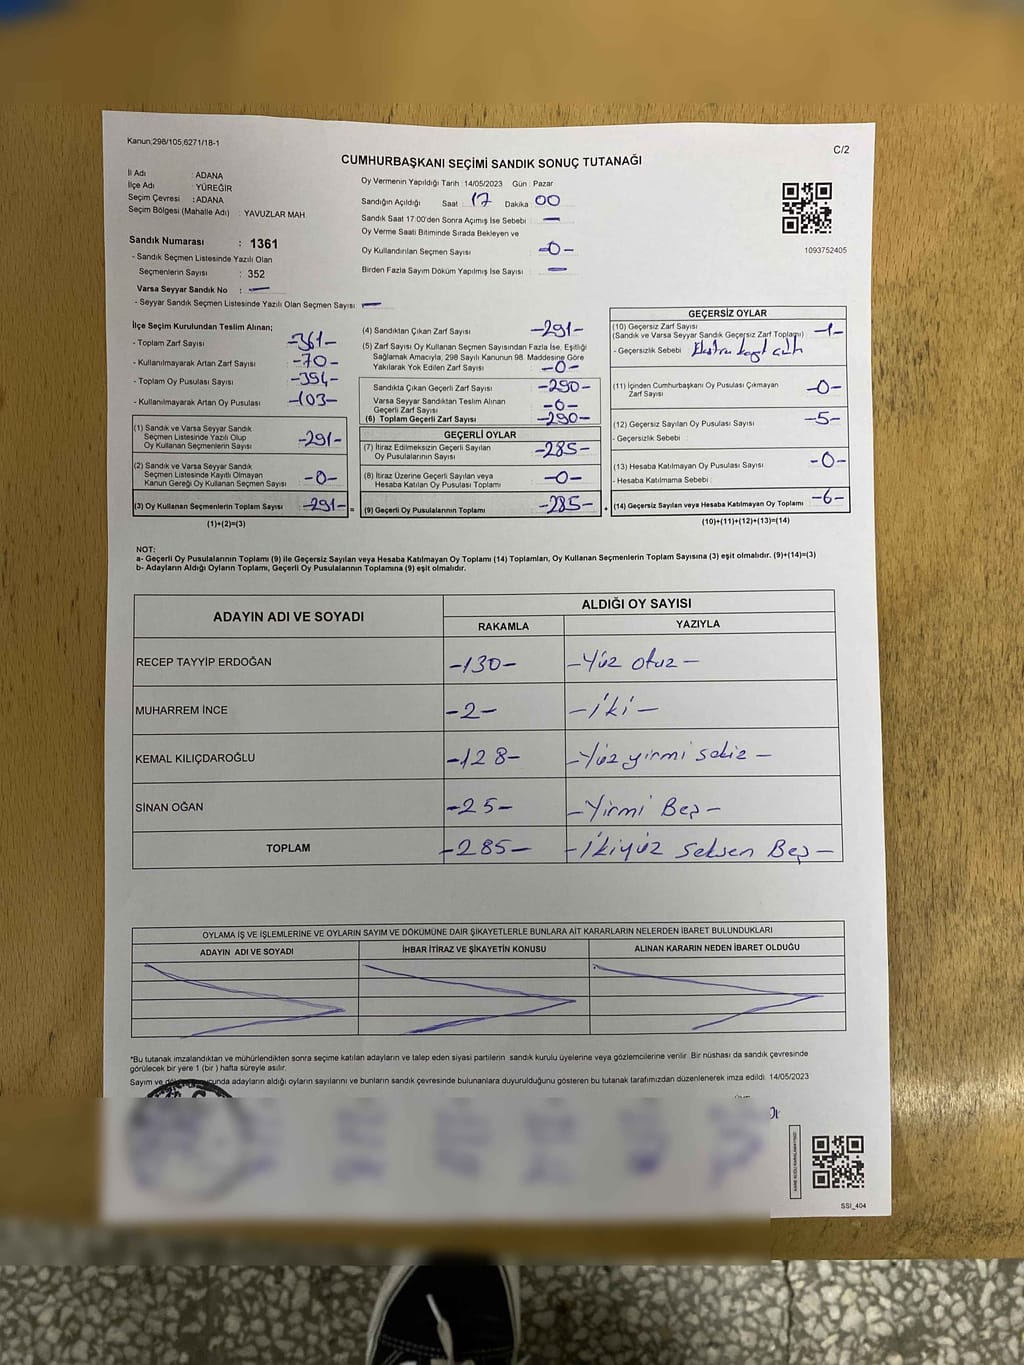 Kanun;298/105;6271/18-1
C/2
CUMHURBAŞKANI SEÇİMİ SANDIK SONUÇ TUTANAĞI
İl Adı : ADANA
İlçe Adı : YÜREĞİR
Seçim Çevresi : ADANA
Seçim Bölgesi (Mahalle Adı) : YAVUZLAR MAH
Sandık Numarası : 1361
- Sandık Seçmen Listesinde Yazılı Olan
Seçmenlerin Sayısı : 352
Varsa Seyyar Sandık No : —
- Seyyar Sandık Seçmen Listesinde Yazılı Olan Seçmen Sayısı: —
Oy Vermenin Yapıldığı Tarih : 14/05/2023 Gün : Pazar
Sandığın Açıldığı Saat : 17 Dakika : 00
Sandık Saat 17:00'den Sonra Açımış İse Sebebi : —
Oy Verme Saati Bitiminde Sırada Bekleyen ve
Oy Kullandırılan Seçmen Sayısı : -0-
Birden Fazla Sayım Döküm Yapılmış İse Sayısı : —
1093752405
İlçe Seçim Kurulundan Teslim Alınan;
- Toplam Zarf Sayısı : -361-
- Kullanılmayarak Artan Zarf Sayısı : -70-
- Toplam Oy Pusulası Sayısı : -394-
- Kullanılmayarak Artan Oy Pusulası : -103-
(1) Sandık ve Varsa Seyyar Sandık
Seçmen Listesinde Yazılı Olup
Oy Kullanan Seçmenlerin Sayısı : -291-
(2) Sandık ve Varsa Seyyar Sandık
Seçmen Listesinde Kayıtlı Olmayan
Kanun Gereği Oy Kullanan Seçmen Sayısı : -0-
(3) Oy Kullanan Seçmenlerin Toplam Sayısı : -291- =
(1)+(2)=(3)
(4) Sandıktan Çıkan Zarf Sayısı : -291-
(5) Zarf Sayısı Oy Kullanan Seçmen Sayısından Fazla İse, Eşitliği
Sağlamak Amacıyla, 298 Sayılı Kanunun 98. Maddesine Göre
Yakılarak Yok Edilen Zarf Sayısı : -0-
Sandıkta Çıkan Geçerli Zarf Sayısı : -290-
Varsa Seyyar Sandıktan Teslim Alınan
Geçerli Zarf Sayısı : -0-
(6) Toplam Geçerli Zarf Sayısı : -290-
GEÇERLİ OYLAR
(7) İtiraz Edilmeksizin Geçerli Sayılan
Oy Pusulalarının Sayısı : -285-
(8) İtiraz Üzerine Geçerli Sayılan veya
Hesaba Katılan Oy Pusulası Toplamı : -0-
(9) Geçerli Oy Pusulalarının Toplamı : -285- +
GEÇERSİZ OYLAR
(10) Geçersiz Zarf Sayısı
(Sandık ve Varsa Seyyar Sandık Geçersiz Zarf Toplamı) : -1-
- Geçersizlik Sebebi :
(11) İçinden Cumhurbaşkanı Oy Pusulası Çıkmayan
Zarf Sayısı : -0-
(12) Geçersiz Sayılan Oy Pusulası Sayısı : -5-
- Geçersizlik Sebebi :
(13) Hesaba Katılmayan Oy Pusulası Sayısı : -0-
- Hesaba Katılmama Sebebi :
(14) Geçersiz Sayılan veya Hesaba Katılmayan Oy Toplamı : -6-
(10)+(11)+(12)+(13)=(14)
NOT:
a- Geçerli Oy Pusulalarının Toplamı (9) ile Geçersiz Sayılan veya Hesaba Katılmayan Oy Toplamı (14) Toplamları, Oy Kullanan Seçmenlerin Toplam Sayısına (3) eşit olmalıdır. (9)+(14)=(3)
b- Adayların Aldığı Oyların Toplamı, Geçerli Oy Pusulalarının Toplamına (9) eşit olmalıdır.
ADAYIN ADI VE SOYADI ALDIĞI OY SAYISI
RAKAMLA YAZIYLA
RECEP TAYYİP ERDOĞAN -130- -Yüz otuz-
MUHARREM İNCE -2- -iki-
KEMAL KILIÇDAROĞLU -128- -Yüz yirmi sekiz-
SİNAN OĞAN -25- -Yirmi Beş-
TOPLAM -285- -İkiyüz seksen Beş-
OYLAMA İŞ VE İŞLEMLERİNE VE OYLARIN SAYIM VE DÖKÜMÜNE DAİR ŞİKAYETLERLE BUNLARA AİT KARARLARIN NELERDEN İBARET BULUNDUKLARI
ADAYIN ADI VE SOYADI İHBAR İTİRAZ VE ŞİKAYETİN KONUSU ALINAN KARARIN NEDEN İBARET OLDUĞU
*Bu tutanak imzalandıktan ve mühürlendikten sonra seçime katılan adayların ve talep eden siyasi partilerin sandık kurulu üyelerine veya gözlemcilerine verilir. Bir nüshası da sandık çevresinde
görülecek bir yere 1 (bir) hafta süreyle asılır.
Sayım ve adayların aldığı oyların sayılarını ve bunların sandık çevresinde bulunanlara duyurulduğunu gösteren bu tutanak tarafımızdan düzenlenerek imza edildi. 14/05/2023
SSI_404